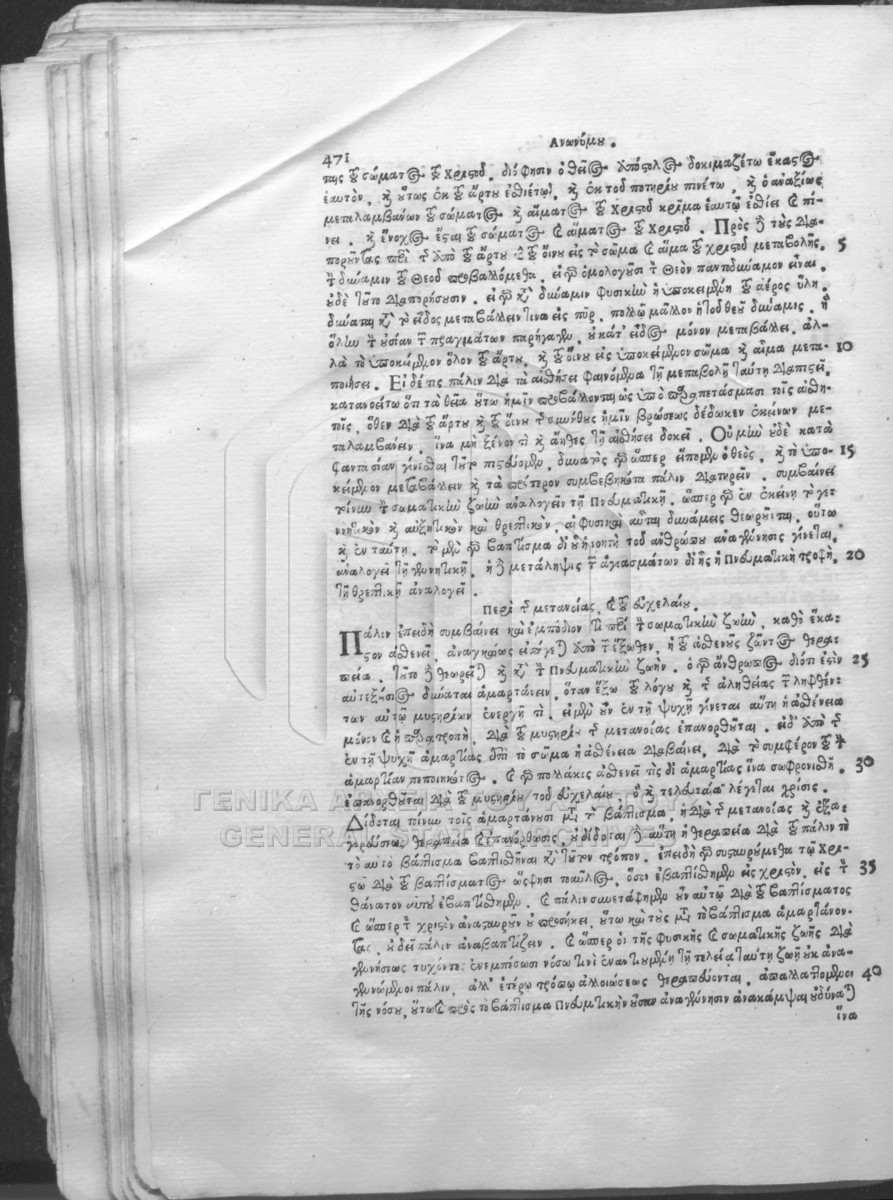 471
Ανωνύμου.
της τοῦ σώματος τοῦ Χριστοῦ. διό φησιν ὁ θεῖος ἀπόστολος δοκιμαζέτω ἕκαστος
ἑαυτὸν, καὶ οὕτως ἐκ τοῦ ἄρτου ἐσθιέτω, καὶ ἐκ τοῦ ποτηρίου πινέτω, καὶ ὁ ἀναξίως
μεταλαμβάνων τοῦ σώματος καὶ αἵματος τοῦ Χριστοῦ κρίμα ἑαυτῷ ἐσθίει καὶ πί-
νει. καὶ ἔνοχος ἔσται τοῦ σώματος καὶ αἵματος τοῦ Χριστοῦ. Πρὸς δὲ τοὺς δια-
ποροῦντας περὶ τῆς ἀπὸ τοῦ ἄρτου καὶ τοῦ οἴνου εἰς τὸ σῶμα καὶ αἷμα τοῦ χριστοῦ μεταβολῆς, 5
τὴν δύναμιν τοῦ Θεοῦ προβαλλόμεθα. εἰ γὰρ ὁμολογοῦσι τὸν Θεὸν παντοδύναμον εἶναι,
οὐδὲ τοῦτο διαπορήσουσιν. εἰ γὰρ κατὰ δύναμιν φυσικὴν ἡ ὑποκειμένη τοῦ ἀέρος ὕλη,
δύναται κατὰ τὸ εἶδος μεταβάλλειν τινα εἰς πῦρ, πολλῷ μᾶλλον ἡ τοῦ θεοῦ δύναμις, ἡ
ὅλην τὴν οὐσίαν τῶν πραγμάτων παρήγαγεν, οὐ κατ' εἶδος μόνον μεταβάλλει, ἀλ-
λὰ τὸ ὑποκείμενον ὅλον τοῦ ἄρτου, καὶ τοῦ οἴνου εἰς ὑποκείμενον σῶμα καὶ αἷμα μετα- 10
ποιήσει. Εἰ δέ τις πάλιν διὰ τὰ αἰσθήσει φαινόμενα τῇ μεταβολῇ ταύτῃ διαπιστεῖ,
κατανοείτω ὅτι τὰ θεῖα οὕτω ἡμῖν προβάλλονται ὡς ὑπὸ παραπετάσμασι τοῖς αἰσθη-
τοῖς, ὅθεν διὰ τοῦ ἄρτου καὶ τοῦ οἴνου τῆς συνήθους ἡμῖν βρώσεως δέδωκεν ἐκείνων με-
ταλαμβάνειν, ἵνα μὴ ξένον τὶ καὶ ἄηθες τῇ αἰσθήσει δοκεῖ. Οὐ μὴν οὐδὲ κατὰ
φαντασίαν γίνεσθαι τοῦτο πιστεύομεν, δυνατὸς γὰρ ὥσπερ εἴπομεν ὁ θεὸς, καὶ τὸ ὑπο- 15
κείμενον μεταβάλλειν καὶ τὰ πρότερον συμβεβηκότα πάλιν διατηρεῖν. συμβαίνει
τοίνυν τὴν σωματικὴν ζωὴν ἀναλογεῖν τῇ Πνευματικῇ. ὥσπερ γὰρ ἐν ἐκείνῃ τὸ γε-
ννητικὸν καὶ αὐξητικὸν καὶ θρεπτικὸν, αἱ φυσικαὶ αὗται δυνάμεις θεωροῦνται, οὕτω
καὶ ἐν ταύτῃ. τὸ μὲν γὰρ βάπτισμα δι' οὗ ἡ νοητὴ τοῦ ἀνθρώπου ἀναγέννησις γίνεται,
ἀναλογεῖ τῇ γεννητικῇ. ἡ δὲ μετάληψις τῶν ἁγιασμάτων δι' ἧς ἡ Πνευματικὴ τροφὴ, 20
τῇ θρεπτικῇ ἀναλογεῖ.
Περὶ τῆς μετανοίας, καὶ τοῦ εὐχελαίου.
Πάλιν ἐπειδὴ συμβαίνει καὶ ἐμπόδιον τι περὶ τὴν σωματικὴν ζωὴν, καθὸ ἕκα-
στον ἀσθενεῖ, ἀναγκαίως ἐπάγεται ἀπὸ τῶν ἔξωθεν, ἡ τοῦ ἀσθενοῦς ζῶντος θερα-
πεία. τοῦτο δὲ θεωρεῖται καὶ κατὰ τὴν Πνευματικὴν ζωήν. ὁ γὰρ ἄνθρωπος διότι ἐστὶν 25
αὐτεξούσιος δύναται ἁμαρτάνειν, ὅταν ἔξω τοῦ λόγου καὶ τῆς ἀληθείας τῶν ληφθέν-
των αὐτῷ μυστηρίων ἐνεργῇ τὶ. εἰ μὲν οὖν ἐν τῇ ψυχῇ γίνεται αὕτη ἡ ἀσθένεια
μόνον καὶ ἡ παρατροπὴ, διὰ τοῦ μυστηρίου τῆς μετανοίας ἐπανορθοῦται. εἰ δ' ἀπὸ τῆς
ἐν τῇ ψυχῇ ἁμαρτίας ἐπὶ τὸ σῶμα ἡ ἀσθένεια διαβαίνει, διὰ τὸ συμφέρον τοῦ τὴν
ἁμαρτίαν πεποιηκότος. καὶ γὰρ πολλάκις ἀσθενεῖ τὶς δι' ἁμαρτίας ἵνα σωφρονισθῇ. 30
ἐπανορθοῦται διὰ τοῦ μυστηρίου τοῦ εὐχελαίου, ὃ καὶ τελευταία λέγεται χρίσις.
Δίδοται τοίνυν τοῖς ἁμαρτάνουσι μετὰ τὸ βάπτισμα, ἡ διὰ τῆς μετανοίας καὶ ἐξα-
γορεύσεως θεραπεία καὶ ἐπανόρθωσις, οὐ δίδοται δὲ αὕτη ἡ θεραπεία διὰ τοῦ πάλιν τὸ
τὸ αὐτὸ βάπτισμα βαπτισθῆναι κατὰ τοῦτον τρόπον. ἐπειδὴ γὰρ συσταυρούμεθα τῷ Χρι-
στῷ διὰ τοῦ βαπτίσματος ὥς φησι παῦλος, ὅσοι ἐβαπτίσθημεν εἰς χριστὸν, εἰς τὸν 35
θάνατον αὐτοῦ ἐβαπτίσθημεν. καὶ πάλιν συνετάφημεν οὖν αὐτῷ διὰ τοῦ βαπτίσματος
καὶ ὥσπερ τὸν χριστὸν ἀνασταυροῦν οὐ προσήκει, οὕτω καὶ τοὺς μετὰ τὸ βάπτισμα ἁμαρτάνον-
τας, οὐ δεῖ πάλιν ἀναβαπτίζειν. καὶ ὥσπερ οἱ τῆς φυσικῆς καὶ σωματικῆς ζωῆς διὰ
γεννήσεως τυχόντες ἐνεμπίσωσι νόσῳ τινὶ ἐναντιουμένῃ τῇ τελείᾳ ταύτῃ ζωῇ οὐκ ἀνα-
γεννώμενοι πάλιν, ἀλλ' ἑτέρῳ τρόπῳ ἀλλοιώσεως θεραπεύονται, ἀπαλλαττόμενοι 40
τῆς νόσου, οὕτω καὶ πρὸς τὸ βάπτισμα Πνευματικὴν οὖσαν ἀναγέννησιν ἀνακάμψαι οὐ δύναται
ἵνα
ΓΕΝΙΚΑ ΑΡΧΕΙΑ ΤΟΥ ΚΡΑΤΟΥΣ
GENERAL STATE ARCHIVES